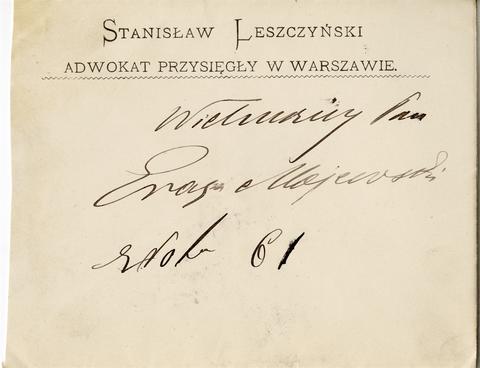 STANISŁAW LESZCZYŃSKI
ADWOKAT PRZYSIĘGŁY W WARSZAWIE.
Wielmożny Pan
Erazm Majewski
Złota 61